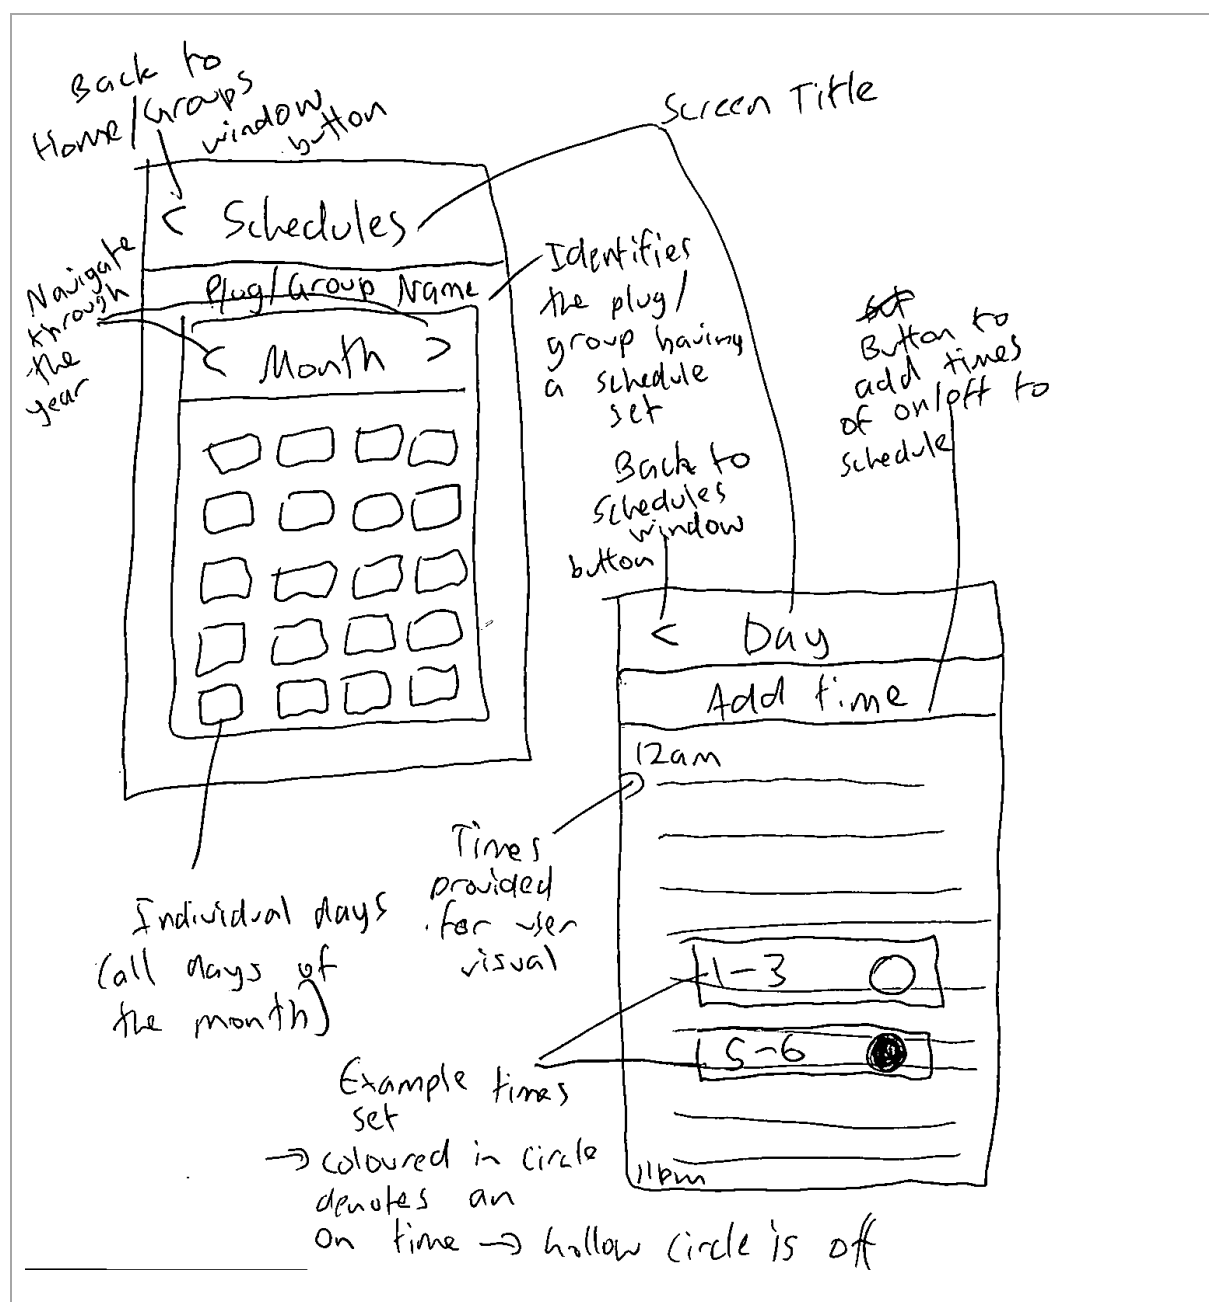 Back to
Home/Groups
window
button
Screen Title
< Schedules
Navigate
through
the
year
Plug/Group Name
Identifies
the plug/
group having
a schedule
set
< Month >
Button to
add times
of on/off to
schedule
Back to
schedules
window
button
< Day
Add time
12am
Times
provided
for user
visual
Individual days
(all days of
the month)
1-3
5-6
Example times
set
→ coloured in circle
denotes an
on time → hollow circle is off
11pm